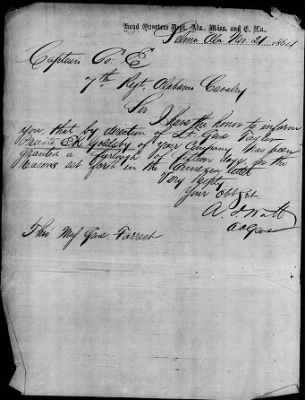 Head Quarters Dept. Ala., Miss. and E. La.,
Selma Ala Nov. 21 1864
Captain Co. E
7th Regt. Alabama Cavalry
Sir I have the honor to inform
you, that by direction of Lt. Genl Taylor
Private E.H. Goldsby of your Company has been
granted a furlough of fifteen days, for the
reasons set forth in the
Very Respty
Your Obt Svt
Thro Maj Genl Forrest